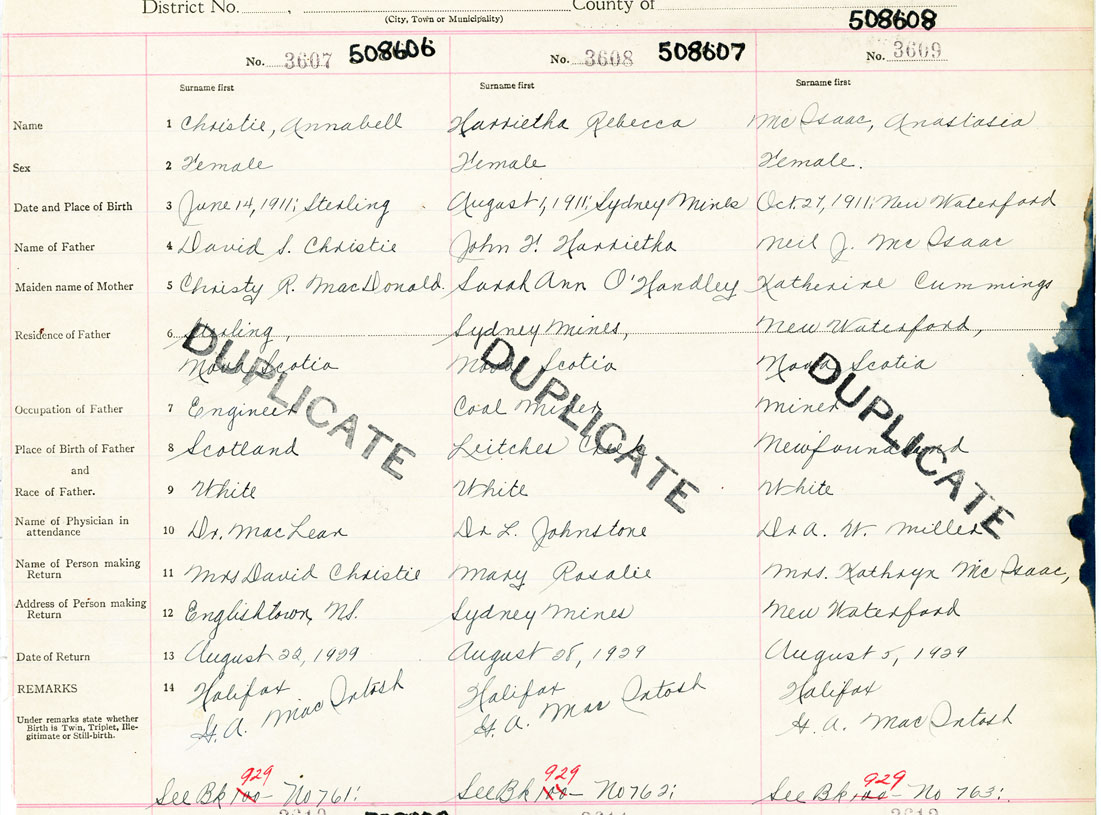 District No. , County of
(City, Town or Municipality)
No. 3607 508606 No. 3608 508607 No. 3609 508608
Surname first Surname first Surname first
Name 1 Christie, Annabell Harrietha Rebecca Mc Isaac, Anastasia
Sex 2 Female Female Female.
Date and Place of Birth 3 June 14, 1911; Sterling August 1, 1911; Sydney Mines Oct. 27, 1911; New Waterford
Name of Father 4 David S. Christie John F. Harrietha Neil J. Mc Isaac
Maiden name of Mother 5 Christy R. MacDonald. Sarah Ann O'Handley Katherine Cummings
Residence of Father 6 Sterling, Sydney Mines, New Waterford,
Nova Scotia Nova Scotia Nova Scotia
DUPLICATE DUPLICATE DUPLICATE
Occupation of Father 7 Engineer Coal Miner Miner
Place of Birth of Father 8 Scotland Leitches Creek Newfoundland
and
Race of Father. 9 White White White
Name of Physician in attendance 10 Dr. MacLean Dr L. Johnstone Dr A. W. Miller
Name of Person making Return 11 Mrs David Christie Mary Rosalie Mrs. Kathryn Mc Isaac,
Address of Person making Return 12 Englishtown, NS. Sydney Mines New Waterford
Date of Return 13 August 22, 1929 August 28, 1929 August 5, 1929
REMARKS 14 Halifax Halifax Halifax
G. A. Mac Intosh G. A. Mac Intosh G. A. Mac Intosh
Under remarks state whether
Birth is Twin, Triplet, Ille-
gitimate or Still-birth.
929 929 929
See Bk 100 - No 761: See Bk 100 - No 762: See Bk 100 - No 763: